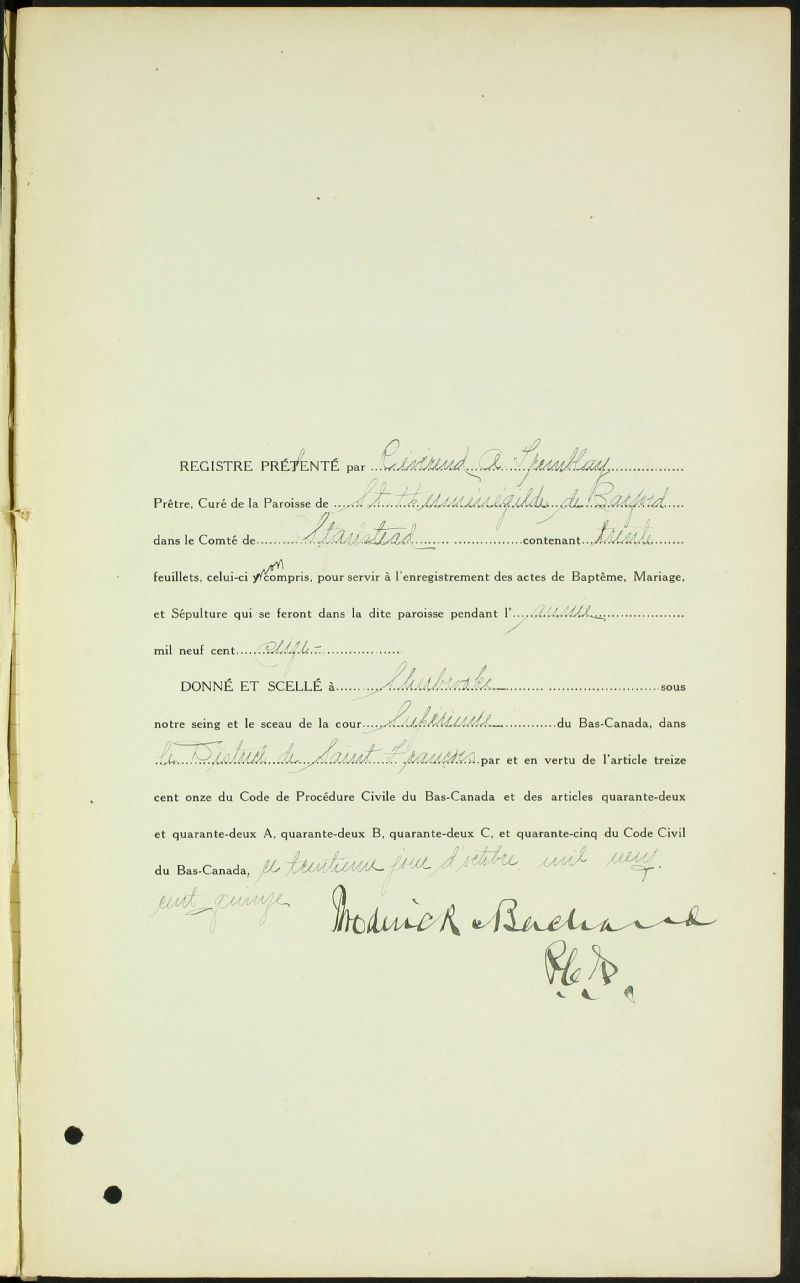 REGISTRE PRÉSENTÉ par Révérend A Tremblay
Prêtre, Curé de la Paroisse de St. Herménégilde de Barford
dans le Comté de Stanstead contenant trente
feuillets, celui-ci non compris, pour servir à l'enregistrement des actes de Baptême, Mariage,
et Sépulture qui se feront dans la dite paroisse pendant l' année
mil neuf cent seize-
DONNÉ ET SCELLÉ à Sherbrooke sous
notre seing et le sceau de la cour Supérieure du Bas-Canada, dans
le District de Saint François par et en vertu de l'article treize
cent onze du Code de Procédure Civile du Bas-Canada et des articles quarante-deux
et quarante-deux A, quarante-deux B, quarante-deux C, et quarante-cinq du Code Civil
du Bas-Canada, ce trentième jour d'octobre mil neuf
cent quinze
Bachand